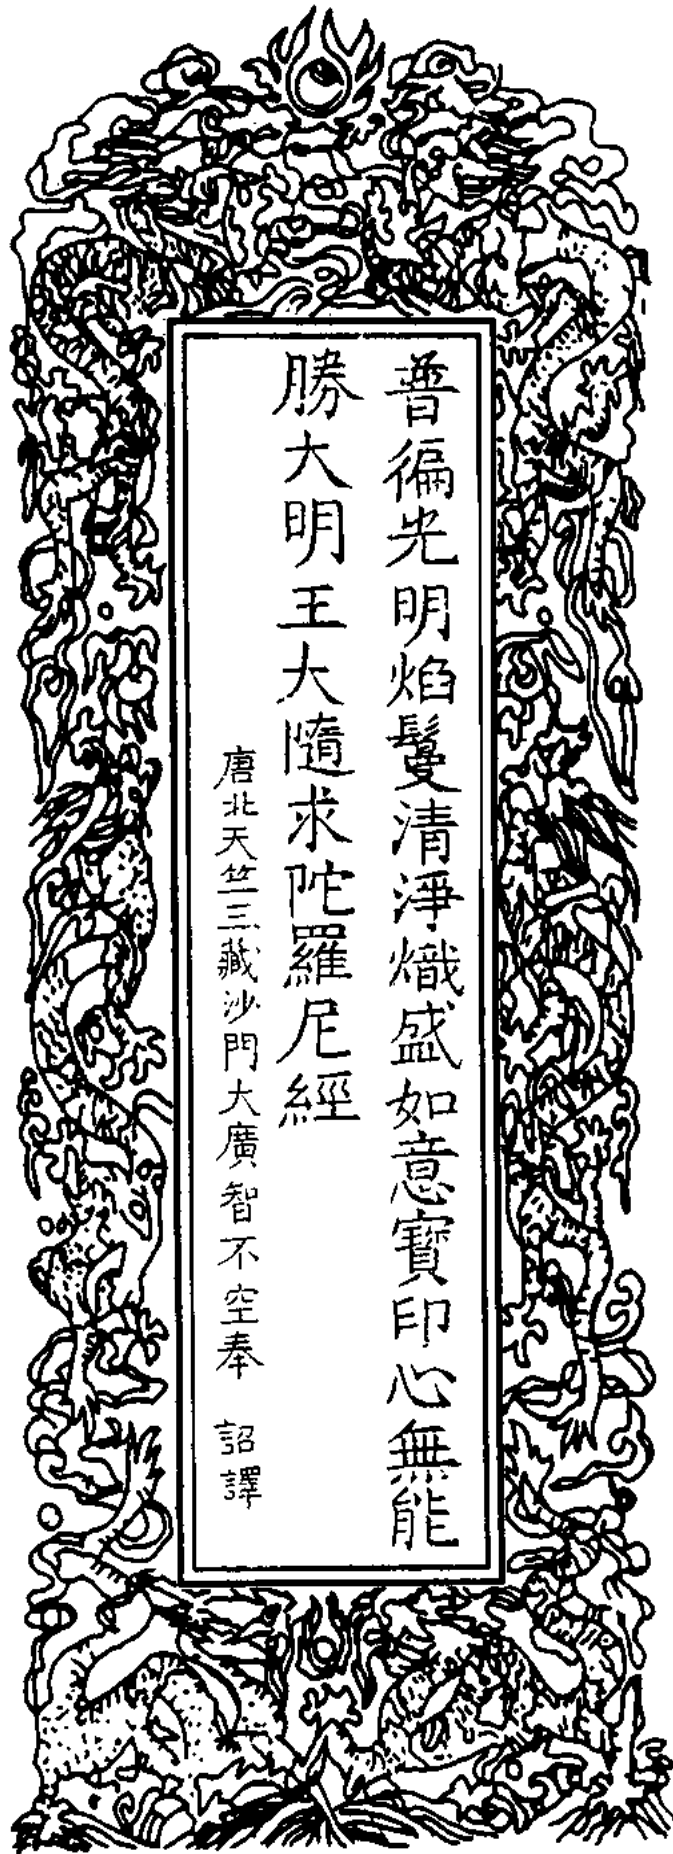 普徧光明焰鬘清淨熾盛如意寶印心無能
勝大明王大隨求陀羅尼經
唐北天竺三藏沙門大廣智不空奉 詔譯